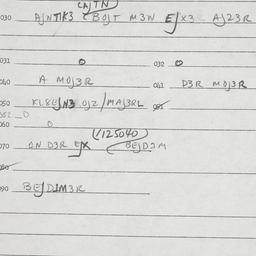 CAJTN
030 AJNTIK3 CBOJT M3N EJX3 AJ23R
031 O 032 O
040 A M0J3R 041 D3R M0J3R
050 KL8EJN3 0J2/MAJ3RL 051
052 O
060 O
(/125040)
070 ON D3R EJX BEJDIM
080
090 BEJDIM3R